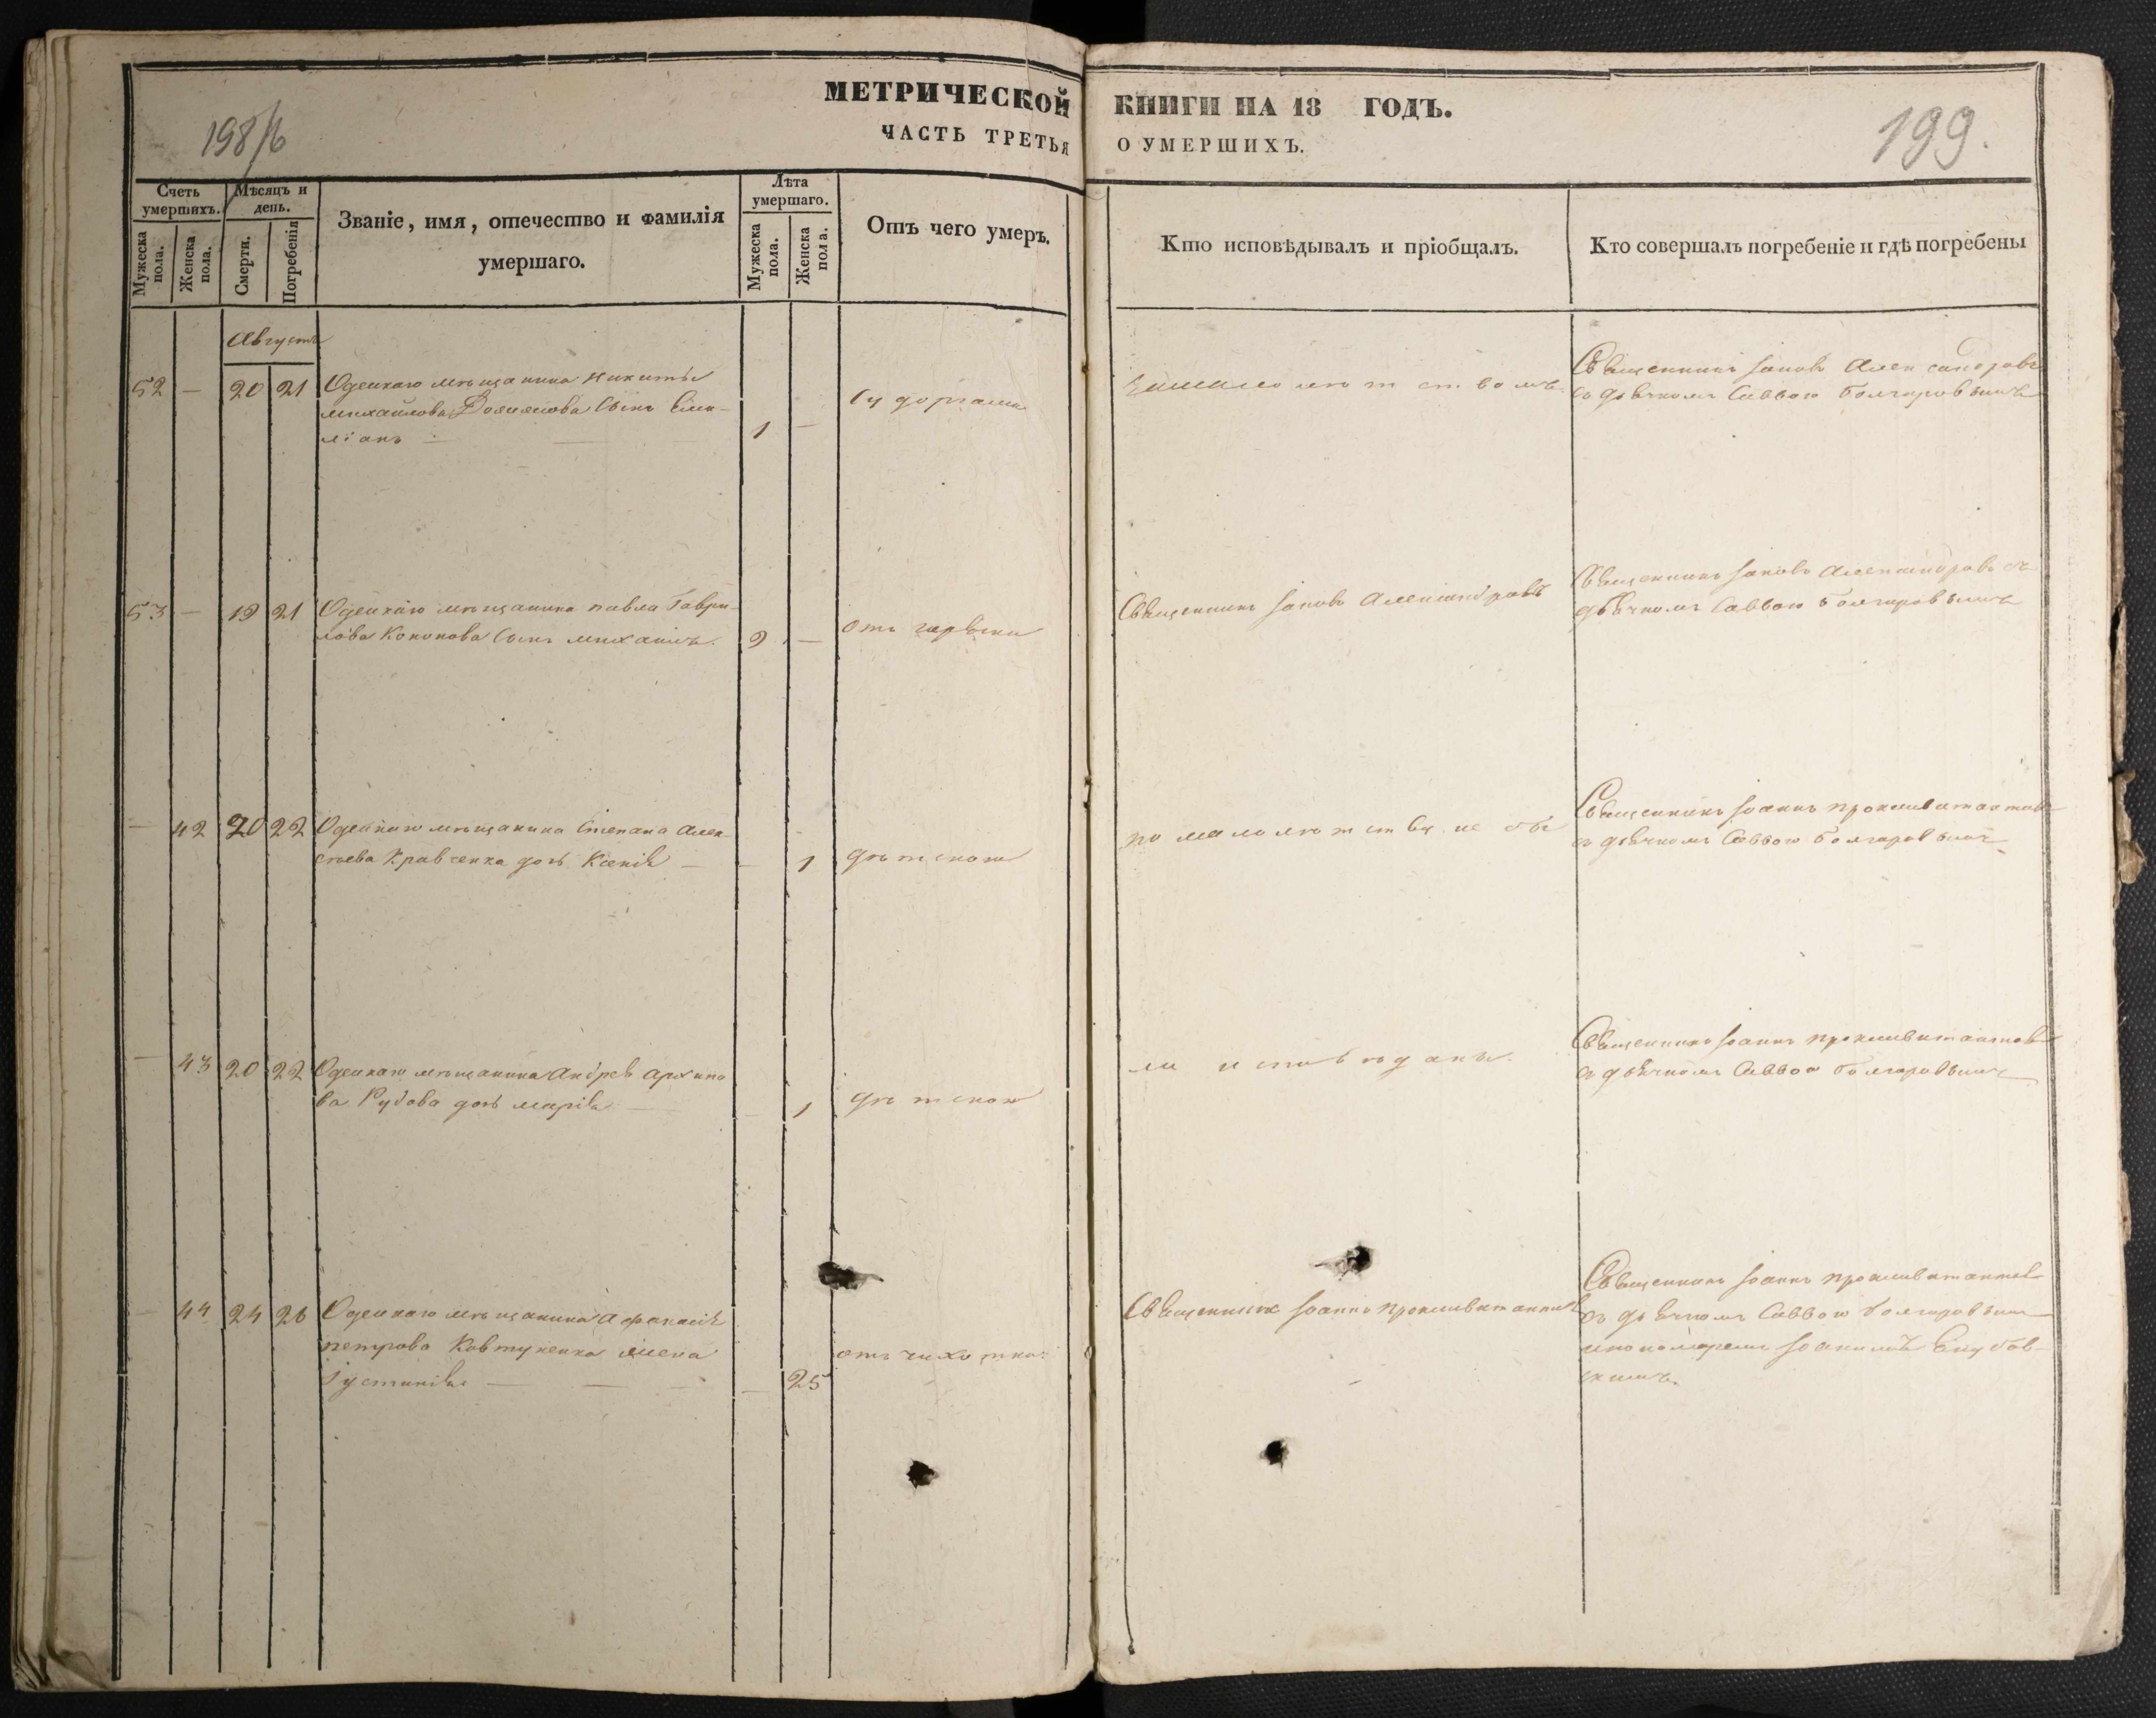 МЕТРИЧЕСКОЙ КНИГИ НА 18 ГОДЪ.
ЧАСТЬ ТРЕТЬЯ О УМЕРШИХЪ.
198/б
199.
Счетъ умершихъ.
Мужеска пола.
Женска пола.
Мѣсяцъ и день.
Смерти.
Погребенія
Званіе, имя, отечество и фамилія
умершаго.
Лѣта умершаго.
Мужеска пола.
Женска пола.
Отъ чего умеръ.
Кто исповѣдывалъ и пріобщалъ.
Кто совершалъ погребеніе и гдѣ погребены
Августъ
52 — 20 21 Одескаго мѣщанина Никиты
михайлова сынъ Еми-
ліанъ 1 —
судоргами
Священникъ Іаковъ Александровъ
съ дьячкомъ Саввою Болгаровымъ
53 — 19 21 Одескаго мѣщанина павла Гаври-
лова Кононова сынъ михаилъ. 9 —
отъ
Священникъ Іаковъ Александровъ
Священникъ Іаковъ Александровъ съ
дьячкомъ Саввою Болгаровымъ
— 42 20 22 Одескаго мѣщанина Степана Алек-
сѣева Кравченка дочь Ксенія — — 1
дѣтскою
по малолѣтству не бы
Священникъ Іоаннъ
съ дьячкомъ Саввою Болгаровымъ
— 43 20 22 Одескаго мѣщанина Андрея Архипо
ва Рудова дочь марія — 1
дѣтскою
ли исповѣданы.
Священникъ Іоаннъ
съ дьячкомъ Саввою Болгаровымъ
— 44 24 26 Одескаго мѣщанина Афанасія
петрова Ковтуненка жена
Іустинія — 25
отъ чихотки
Священникъ Іоаннъ
Священникъ Іоаннъ
съ дьячкомъ Саввою Болгаровымъ
и пономаремъ